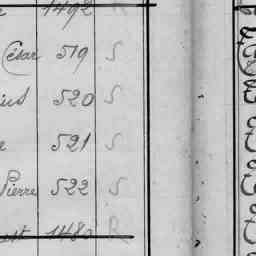 1492 R
César 519 S
ius 520 S
e 521 S
Pierre 522 S
est 1480 R